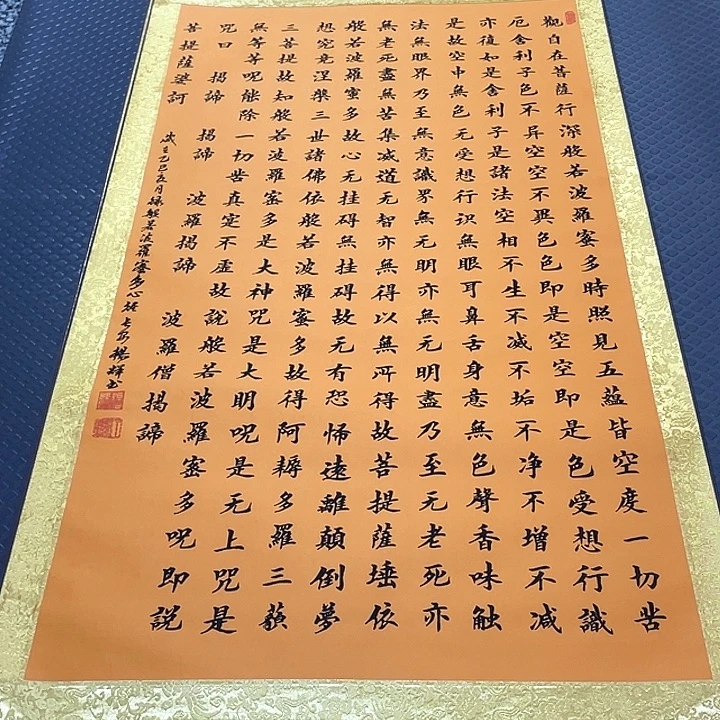 觀自在菩薩行深般若波羅蜜多時照見五蘊皆空度一切苦
厄舍利子色不异空空不異色色即是空空即是色受想行識
亦復如是舍利子是諸法空相不生不滅不垢不净不增不减
是故空中無色无受想行识無眼耳鼻舌身意無色聲香味触
法無眼界乃至無意識界無无明亦無无明盡乃至无老死亦
無老死盡無苦集滅道无智亦無得以無所得故菩提薩埵依
般若波羅蜜多故心无挂碍無挂碍故无有恐怖遠離顛倒夢
想究竟涅槃三世諸佛依般若波羅蜜多故得阿耨多羅三藐
三菩提故知般若波羅蜜多是大神咒是大明呪是无上咒是
無等等呪能除一切苦真實不虚故說般若波羅蜜多呪即説
咒曰 揭諦 揭諦 波羅揭諦 波羅僧揭諦
菩提薩婆訶
乙巳 月 般若波羅蜜多心經 楊輝书